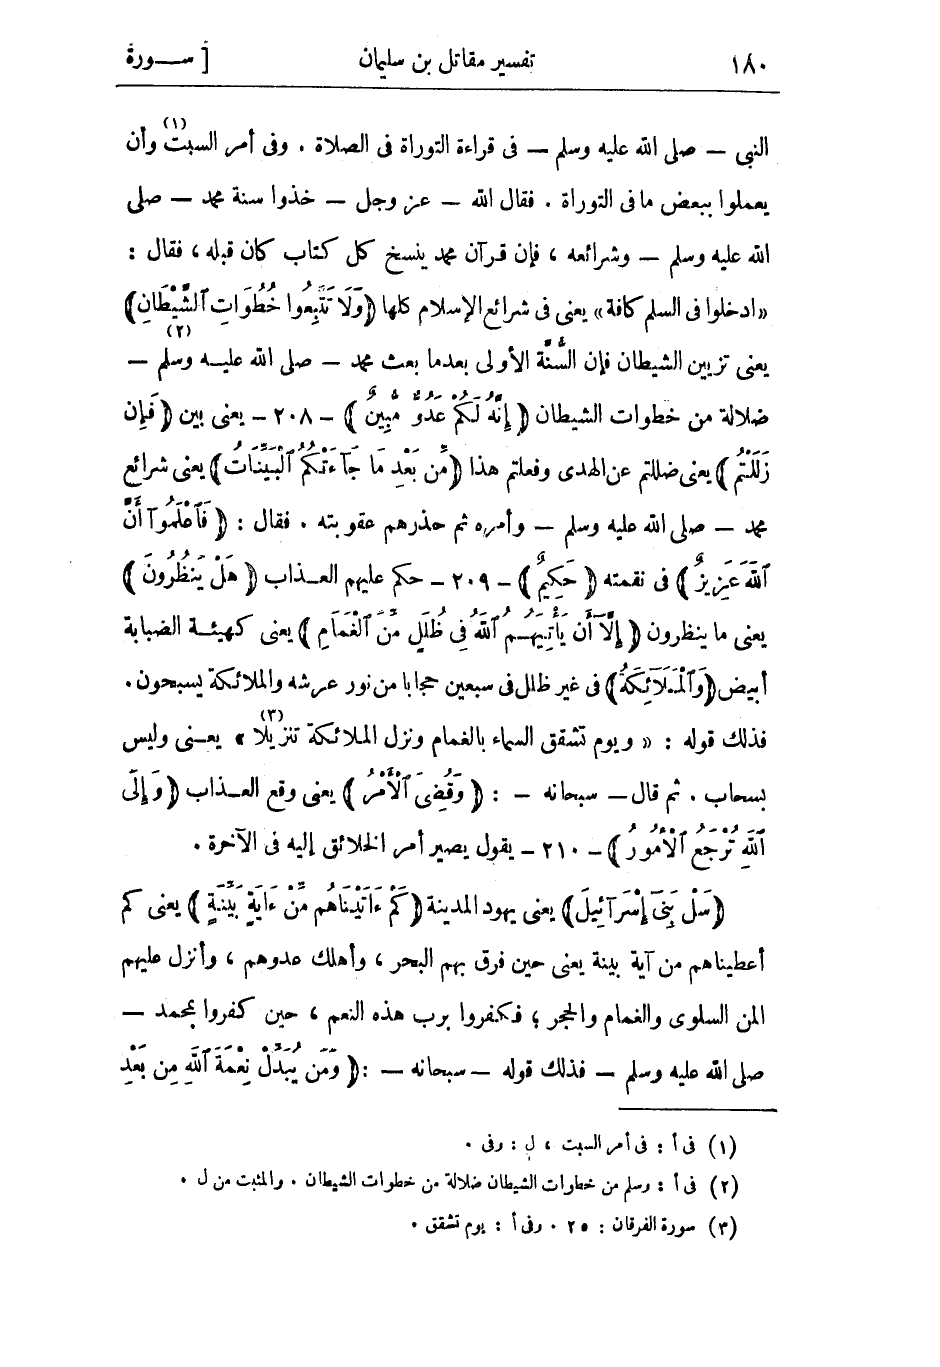 ١٨٠ تفسير مقاتل بن سليمان [ ســورة
النبى — صلى الله عليه وسلم — فى قراءة التوراة فى الصلاة . وفى أمر السبت (١) وأن
يعملوا ببعض ما فى التوراة . فقال الله — عز وجل — خذوا سنة محمد — صلى
الله عليه وسلم — وشرائعه ، فإن قرآن محمد ينسخ كل كتاب كان قبله ، فقال :
«ادخلوا فى السلم كافة» يعنى فى شرائع الإسلام كلها ( وَلَا تَتَّبِعُوا خُطُوَاتِ ٱلشَّيْطَانِ )
يعنى تزيين الشيطان فإن السُّنَّة الأولى بعدما بعث محمد — صلى الله عليــه وسلم (٢) —
ضلالة من خطوات الشيطان ( إِنَّهُ لَكُمْ عَدُوٌّ مُّبِينٌ ) — ٢٠٨ — يعنى بين ( فَإِن
زَلَلْتُم ) يعنى ضللتم عن الهدى وفعلتم هذا ( مِّن بَعْدِ مَا جَآءَتْكُمُ ٱلْبَيِّنَاتُ ) يعنى شرائع
محمد — صلى الله عليه وسلم — وأمره ثم حذرهم عقوبته . فقال : ( فَٱعْلَمُوٓا أَنَّ
ٱللَّهَ عَزِيزٌ ) فى نقمته ( حَكِيمٌ ) — ٢٠٩ — حكم عليهم العــذاب ( هَلْ يَنظُرُونَ )
يعنى ما ينظرون ( إِلَّآ أَن يَأْتِيَهُــمُ ٱللَّهُ فِى ظُلَلٍ مِّنَ ٱلْغَمَامِ ) يعنى كهيئــة الضبابة
أبيض ( وَٱلْمَلَآئِكَةُ ) فى غير ظلل فى سبعين حجابا من نور عرشه والملائكة يسبحون .
فذلك قوله : « ويوم تشقق السماء بالغمام ونزل الملائكة تنزيلا (٣) » يعــنى وليس
بسحاب . ثم قال — سبحانه — : ( وَقُضِىَ ٱلْأَمْرُ ) يعنى وقع العــذاب ( وَإِلَى
ٱللَّهِ تُرْجَعُ ٱلْأُمُورُ ) — ٢١٠ — يقول يصير أمر الخلائق إليه فى الآخرة .
( سَلْ بَنِىٓ إِسْرَآئِيلَ ) يعنى يهود المدينة ( كَمْ ءَاتَيْنَاهُم مِّنْ ءَايَةٍ بَيِّنَةٍ ) يعنى كم
أعطيناهم من آية بينة يعنى حين فرق بهم البحر ، وأهلك عدوهم ، وأنزل عليهم
المن السلوى والغمام والحجر ؛ فكفروا برب هذه النعم ، حين كفروا بمحمد —
صلى الله عليه وسلم — فذلك قوله — سبحانه — : ( وَمَن يُبَدِّلْ نِعْمَةَ ٱللَّهِ مِن بَعْدِ
(١) فى أ : فى أمر السبت ، ل : وفى .
(٢) فى أ : وسلم من خطوات الشيطان ضلالة من خطوات الشيطان . والمثبت من ل .
(٣) سورة الفرقان : ٢٥ . وفى أ : يوم تشقق .